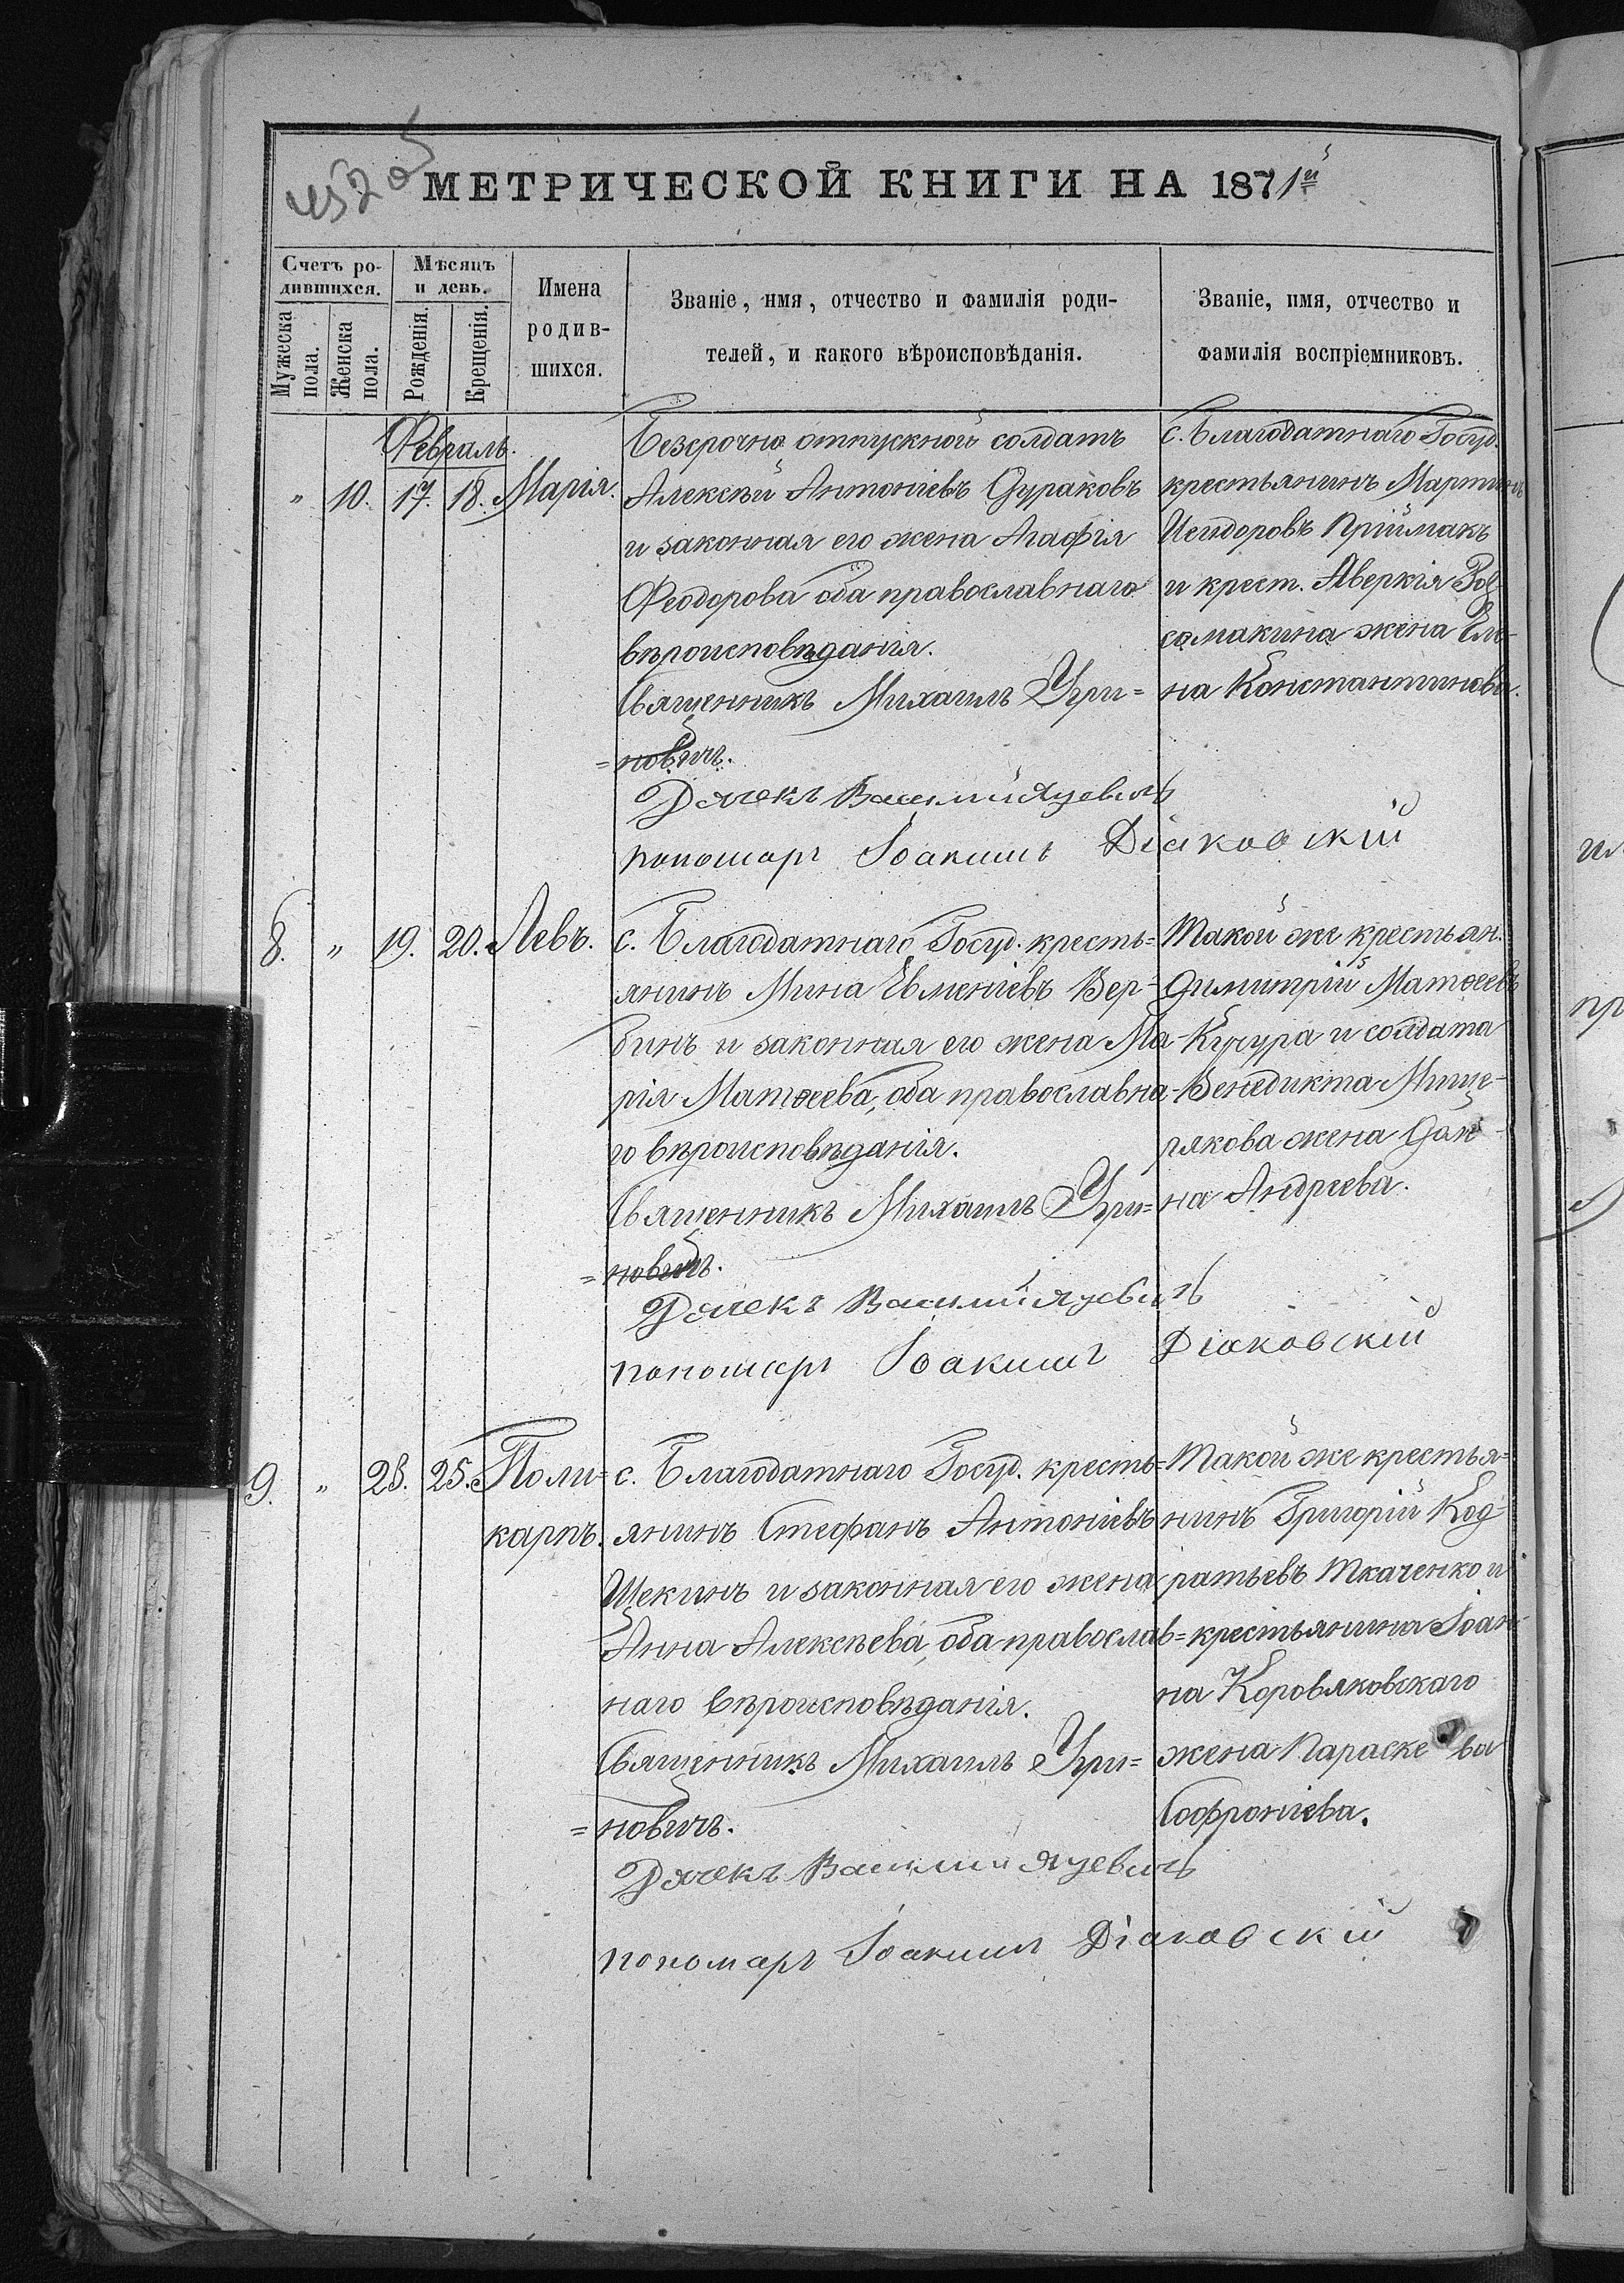 МЕТРИЧЕСКОЙ КНИГИ НА 1871й
Счетъ ро-
дившихся.
Мужеска
пола.
Женска
пола.
Мѣсяцъ
и день.
Рожденія.
Крещенія.
Имена
родив-
шихся.
Званіе, имя, отчество и фамилія роди-
телей, и какого вѣроисповѣданія.
Званіе, имя, отчество и
фамилія воспріемниковъ.
Февраль.
" 10. 17. 18. Марія.
Безсрочно отпускной солдатъ
Алексѣй Антоніевъ Дураковъ
и законная его жена Агафія
Феодорова оба православнаго
вѣроисповѣданія.
Священникъ Михаилъ Угри=
=новичъ.
Дячекъ Василий Яцевичъ
пономарь Іоакимъ Діаковскій
с. Благодатнаго Госуд.
крестьянинъ Мартинъ
Исидоровъ Пріймакъ
и крест. Аверкія
сомакина жена Еле-
на Константинова.
8. " 19. 20. Левъ.
с. Благодатнаго Госуд. кресть=
янинъ Мина Евменіевъ Вер-
бинъ и законная его жена Ма-
рія Матѳеева, оба православна-
го вѣроисповѣданія.
Священникъ Михаилъ Угри=
=новичъ.
Дячекъ Василий Яцевичъ
пономарь Іоакимъ Діаковскій
Такой же крестьян.
Димитрій Матѳеевъ
Кучура и солдата
Венедикта Мище-
рякова жена
на Андреева.
9. " 23. 25. Поли=
карпъ.
с. Благодатнаго Госуд. кресть=
янинъ Стефанъ Антоніевъ
Щекинъ и законная его жена
Анна Алексѣева, оба православ=
наго вѣроисповѣданія.
Священникъ Михаилъ Угри=
=новичъ.
Дячекъ Василии Яцевичъ
пономарь Іоакимъ Діаковскій
Такой же крестья=
нинъ Григорій Код-
ратьевъ Ткаченко и
крестьянина Іоан-
на Коровяковскаго
жена Параскева
Софроніева.